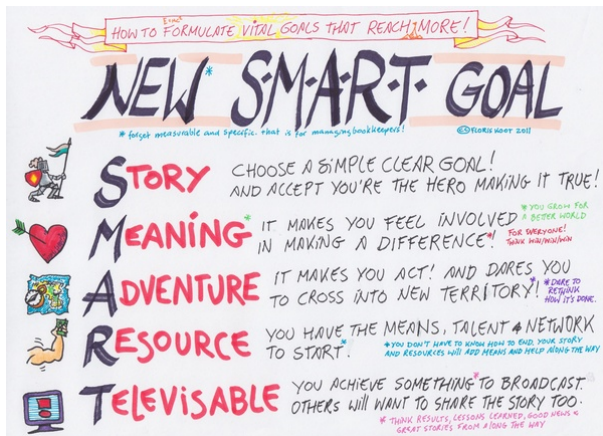 HOW TO EXACT FORMULATE VITAL GOALS THAT REACH MORE!
NEW* S·M·A·R·T· GOAL
* forget measurable and specific. that is for managing bookkeepers!
© FLORIS KOOT 2011
STORY
CHOOSE A SIMPLE CLEAR GOAL!
AND ACCEPT YOU'RE THE HERO MAKING IT TRUE!
MEANING*
IT MAKES YOU FEEL INVOLVED
IN MAKING A DIFFERENCE*!
* YOU GROW FOR
A BETTER WORLD
FOR EVERYONE!
THINK WIN/WIN/WIN
ADVENTURE
IT MAKES YOU ACT! AND DARES YOU
TO CROSS INTO NEW TERRITORY!*
* DARE TO
RETHINK
HOW IT'S DONE.
RESOURCE
YOU HAVE THE MEANS, TALENT & NETWORK
TO START.*
* YOU DON'T HAVE TO KNOW HOW TO END, YOUR STORY
AND RESOURCES WILL ADD MEANS AND HELP ALONG THE WAY
TELEVISABLE
YOU ACHIEVE SOMETHING* TO BROADCAST.
OTHERS WILL WANT TO SHARE THE STORY TOO.
* THINK RESULTS, LESSONS LEARNED, GOOD NEWS &
GREAT STORIES FROM ALONG THE WAY